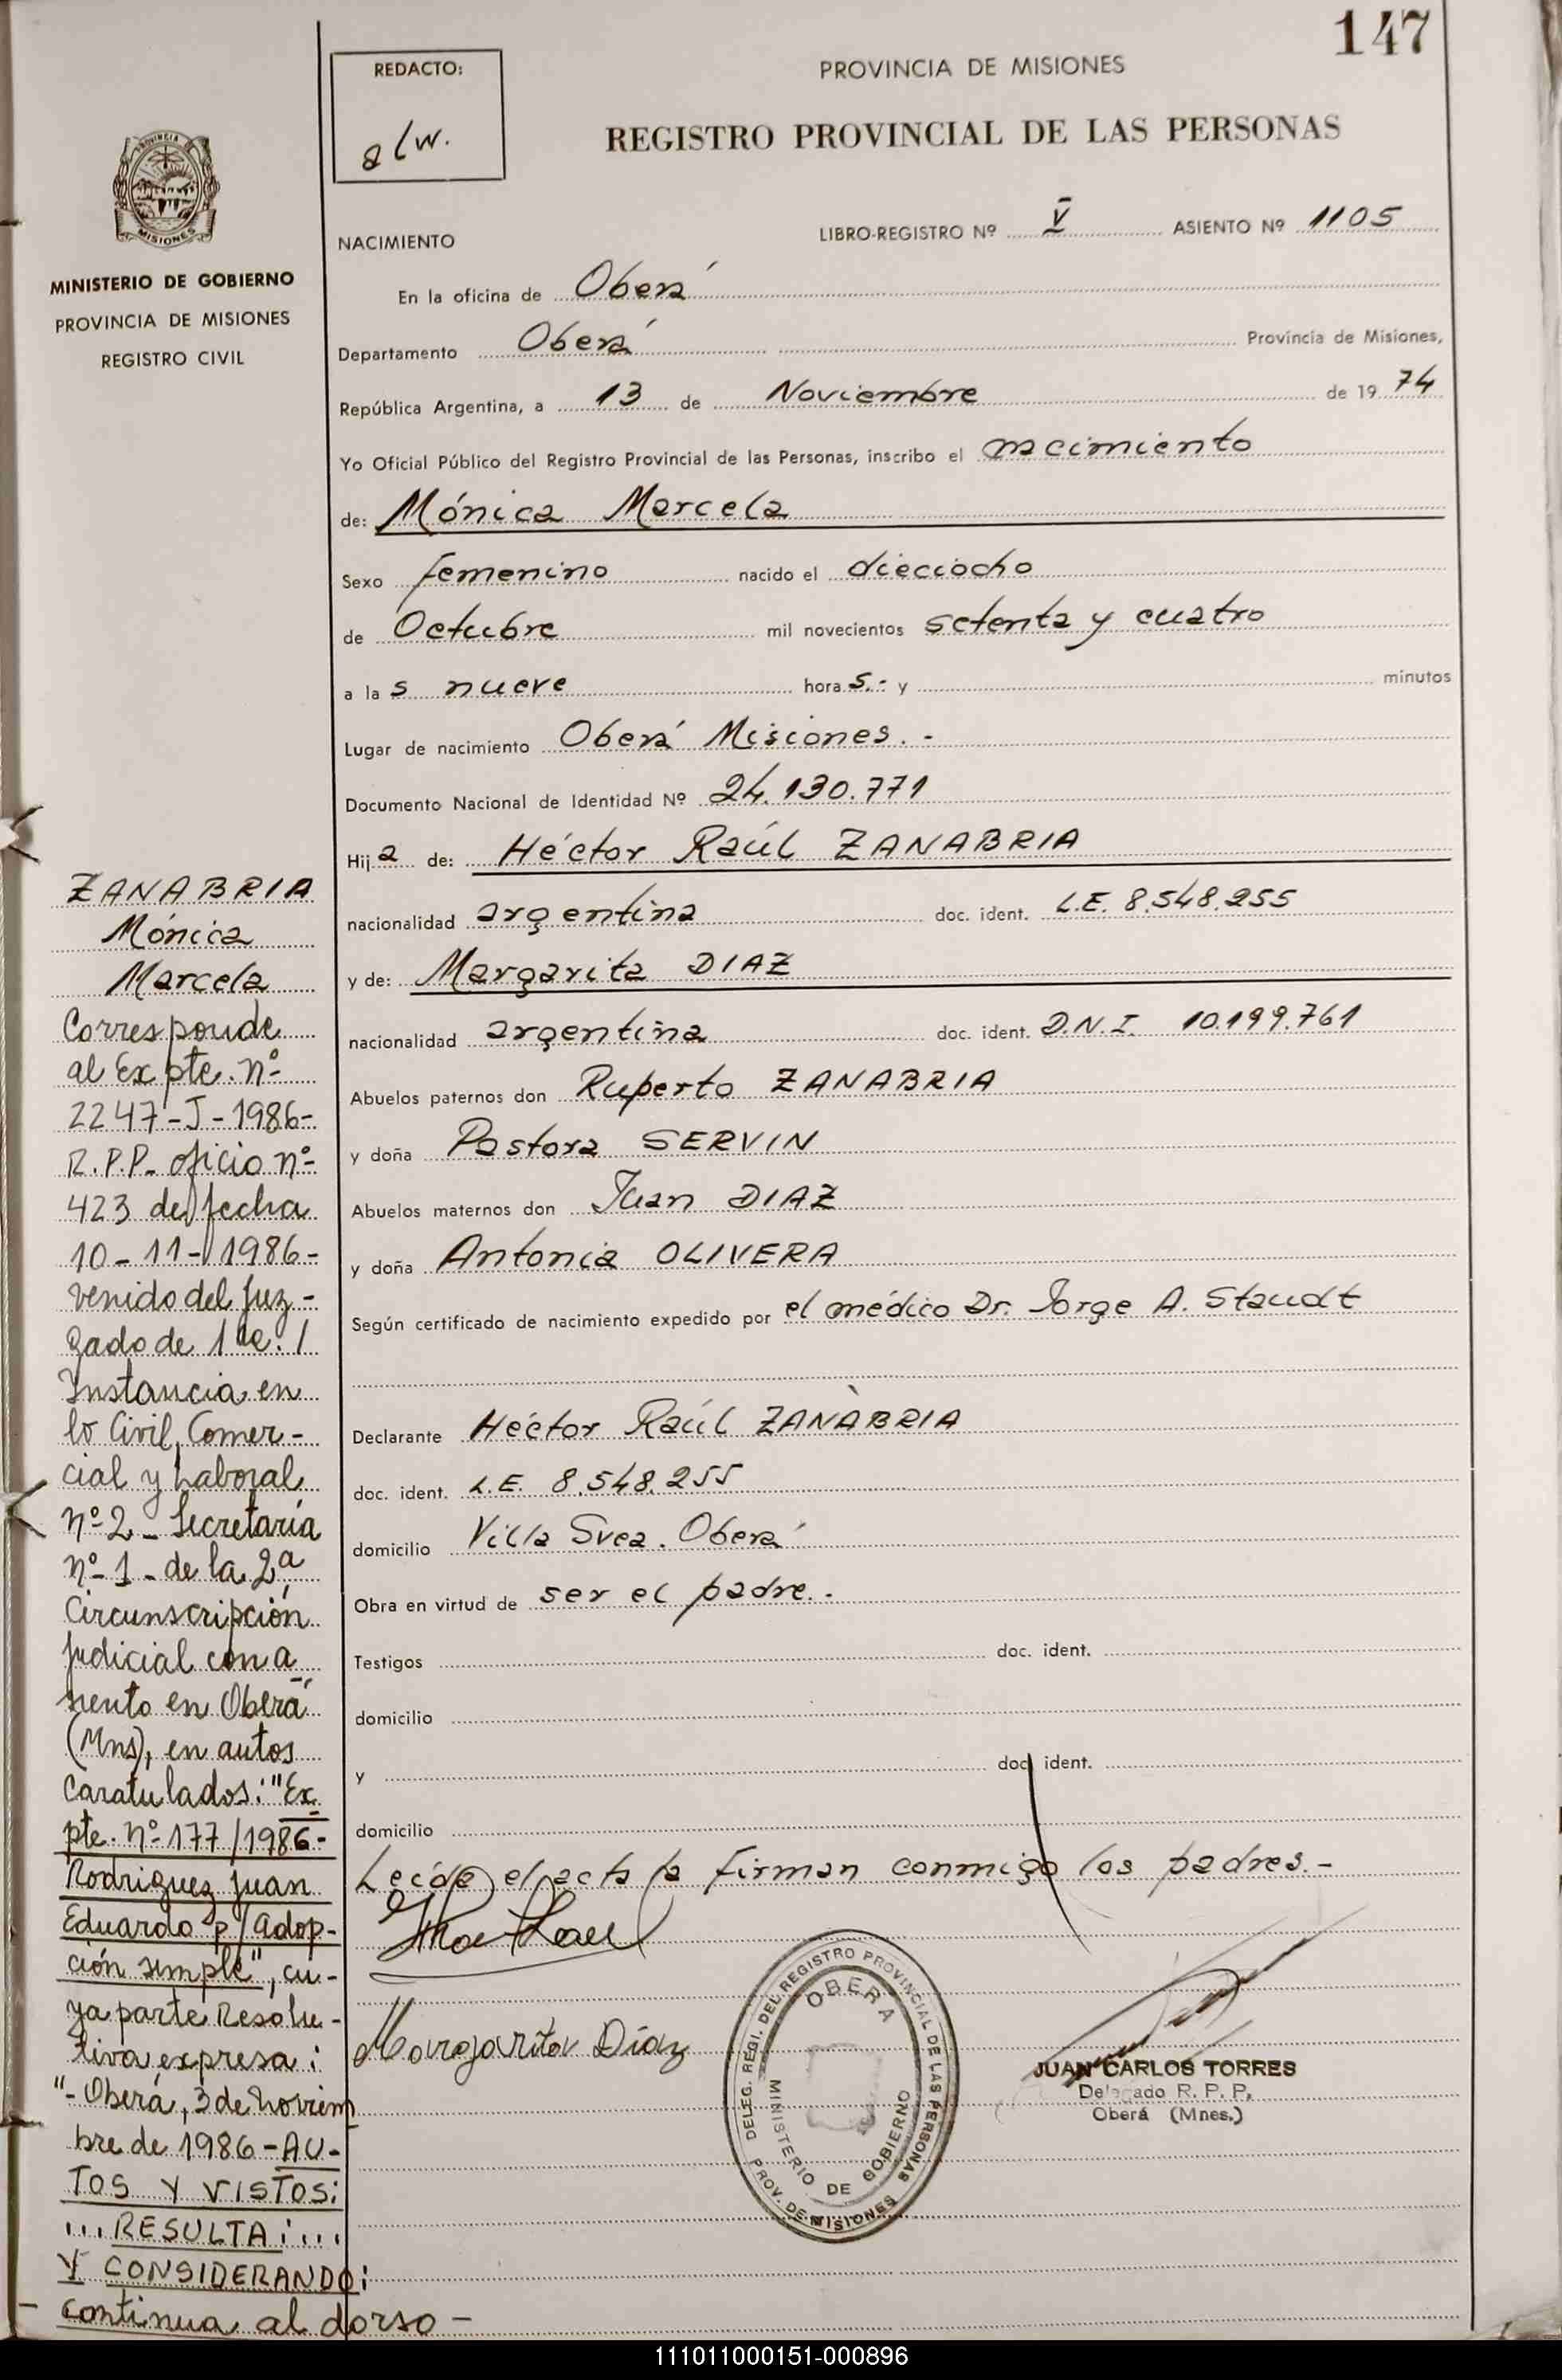 147
REDACTO:
alw.
PROVINCIA DE MISIONES
REGISTRO PROVINCIAL DE LAS PERSONAS
PROVINCIA
MISIONES
MINISTERIO DE GOBIERNO
PROVINCIA DE MISIONES
REGISTRO CIVIL
NACIMIENTO
LIBRO-REGISTRO Nº V ASIENTO Nº 1105
En la oficina de Oberá
Departamento Oberá Provincia de Misiones,
República Argentina, a 13 de Noviembre de 1974
Yo Oficial Público del Registro Provincial de las Personas, inscribo el nacimiento
de: Mónica Marcela
Sexo femenino nacido el dieciocho
de Octubre mil novecientos setenta y cuatro
a las nueve horas.- y minutos
Lugar de nacimiento Oberá Misiones.-
Documento Nacional de Identidad Nº 24.130.771
Hija de: Héctor Raúl ZANABRIA
nacionalidad argentina doc. ident. L.E. 8.548.255
y de: Margarita DIAZ
nacionalidad argentina doc. ident. D.N.I. 10.199.761
Abuelos paternos don Ruperto ZANABRIA
y doña Pastora SERVIN
Abuelos maternos don Juan DIAZ
y doña Antonia OLIVERA
Según certificado de nacimiento expedido por el médico Dr. Jorge A. Staudt
Declarante Héctor Raúl ZANABRIA
doc. ident. L.E. 8.548.255
domicilio Villa Svea. Oberá
Obra en virtud de ser el padre.-
Testigos doc. ident.
domicilio
y doc. ident.
domicilio
Leída el acta la firman conmigo los padres.-
Margarita Díaz
DELEG. REGI. DEL REGISTRO PROVINCIAL DE LAS PERSONAS
OBERA
MINISTERIO DE GOBIERNO
PROV. DE MISIONES
JUAN CARLOS TORRES
Delegado R. P. P.
Oberá (Mnes.)
ZANABRIA
Mónica
Marcela
Corresponde
al Expte. nº
2247-J-1986-
R.P.P. oficio nº
423 de fecha
10-11-1986-
venido del Juz-
gado de 1ra. /
Instancia en
lo Civil, Comer-
cial y Laboral
nº 2 - Secretaría
nº 1 - de la 2ª
Circunscripción
Judicial con a
siento en Oberá
(Mns), en autos
Caratulados: "Ex
pte. nº 177/1986-
Rodriguez Juan
Eduardo p/ Adop-
ción simple", cu-
ya parte Resolu-
tiva expresa:
"- Oberá, 3 de Noviem
bre de 1986 - AU-
TOS Y VISTOS:
...RESULTA:...
Y CONSIDERANDO:
- Continua al dorso -
111011000151-000896